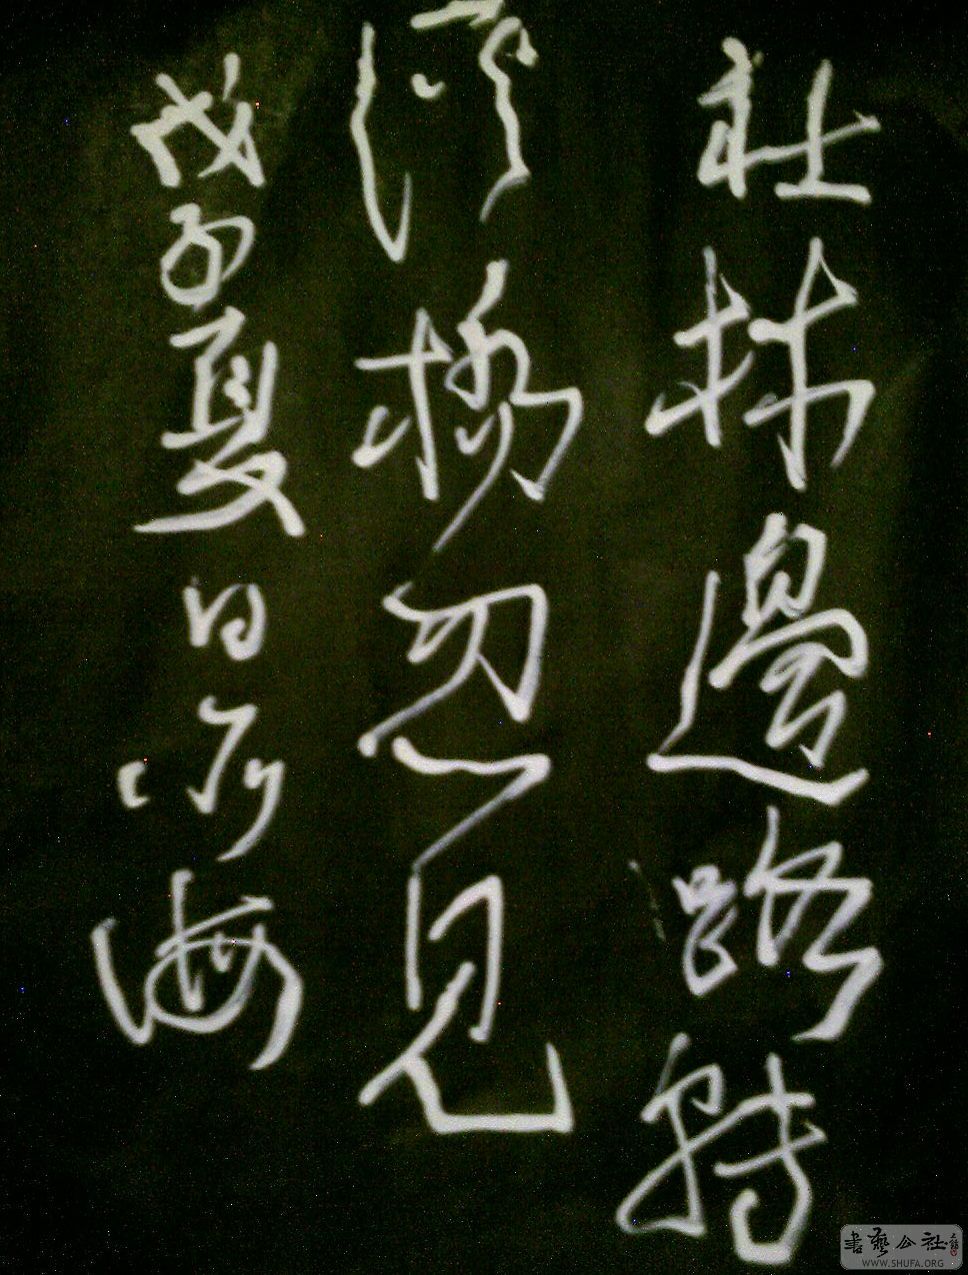 社林邊路轉
溪橋忽見
戊子夏日小海
書藝公社
WWW.SHUFA.ORG